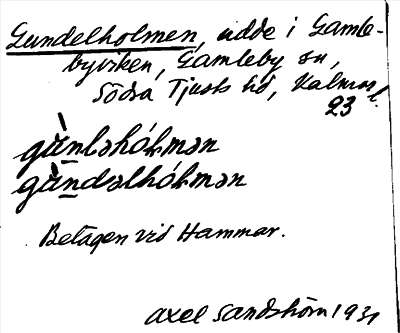 Gundelholmen, udde i Gamle-
byviken, Gamleby sn,
Södra Tjusts hd, Kalmar l.
23
gùnləhólmən
gùndəlhólmən
Betagen vid Hammar.
Axel Sandström 1931